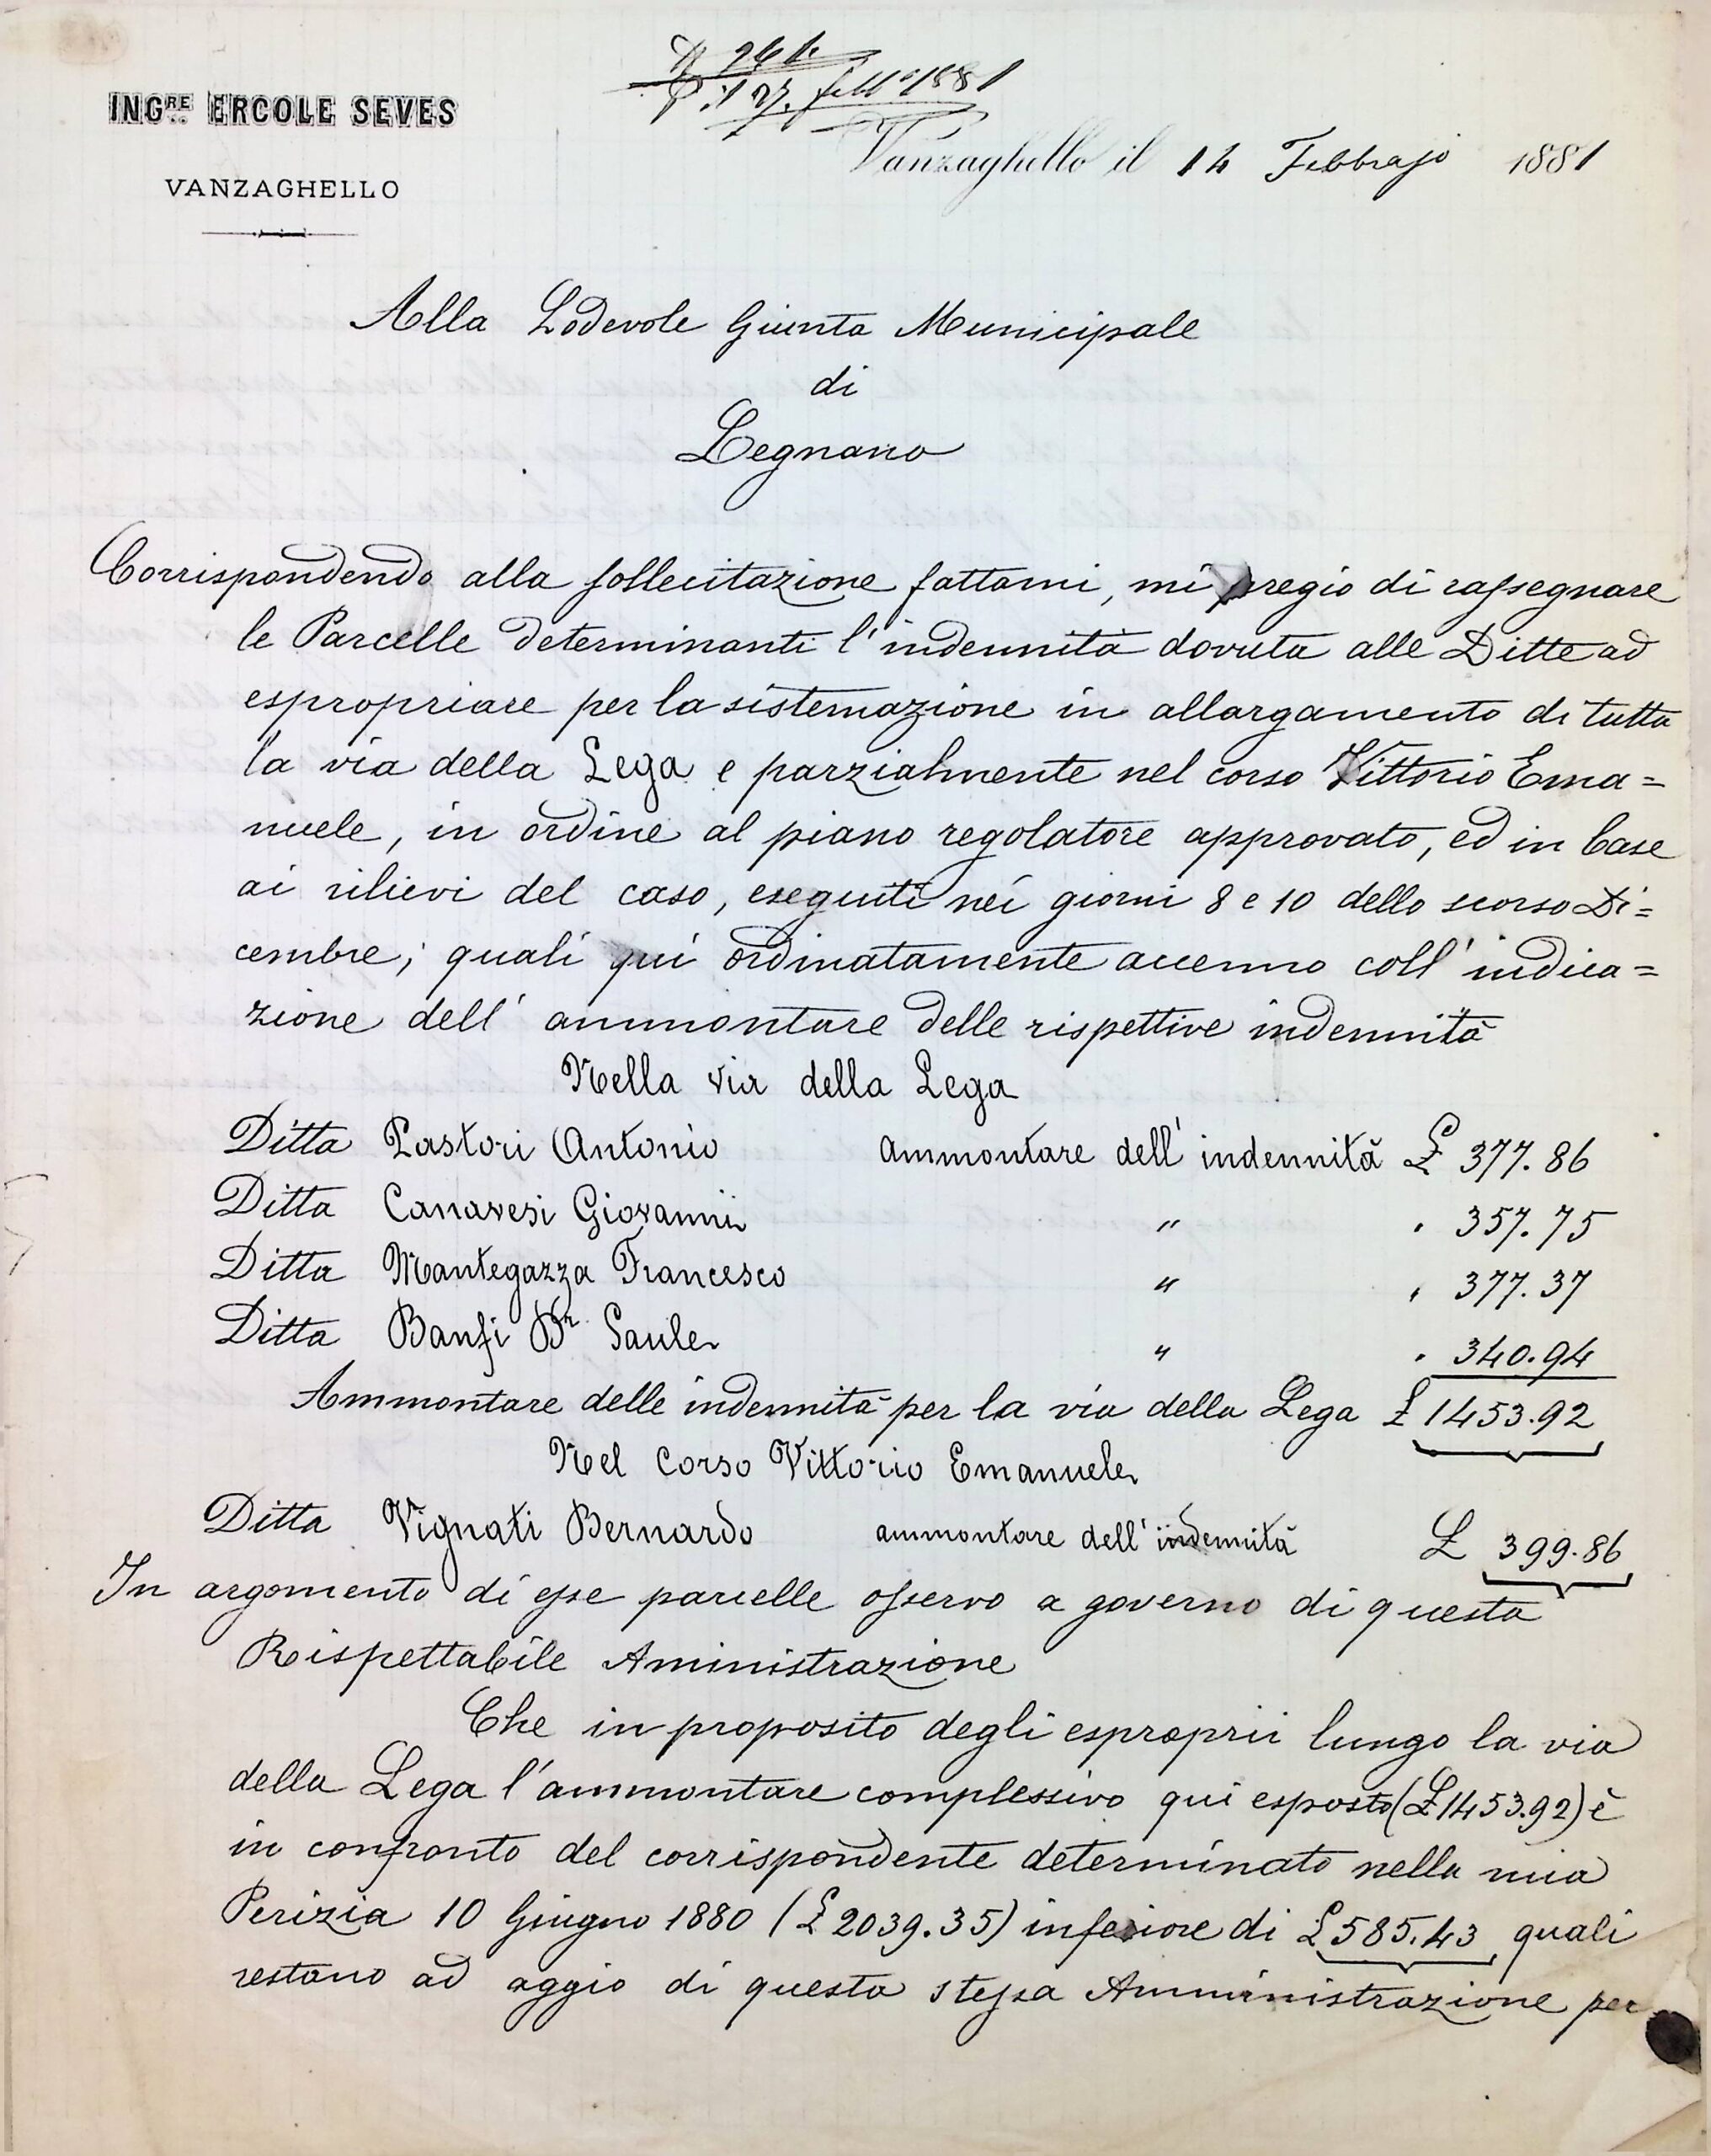 ING.RE ERCOLE SEVES
VANZAGHELLO
N 261.
P. il 27. febb.o 1881
Vanzaghello il 14 Febbrajo 1881
Alla Lodevole Giunta Municipale
di
Legnano
Corrispondendo alla sollecitazione fattami, mi pregio di rassegnare
le Parcelle determinanti l'indennità dovuta alle Ditte ad
espropriare per la sistemazione in allargamento di tutta
la via della Lega e parzialmente nel corso Vittorio Ema=
nuele, in ordine al piano regolatore approvato, ed in base
ai rilievi del caso, eseguiti nei giorni 8 e 10 dello scorso Di=
cembre; quali qui ordinatamente accenno coll' indica=
zione dell' ammontare delle rispettive indennità
Nella via della Lega
Ditta Pastori Antonio ammontare dell' indennità £ 377.86
Ditta Canavesi Giovanni " " 357.75
Ditta Mantegazza Francesco " " 377.37
Ditta Banfi Dr Saule " " 340.94
Ammontare delle indennità per la via della Lega £ 1453.92
Nel Corso Vittorio Emanuele
Ditta Vignati Bernardo ammontare dell' indennità £ 399.86
In argomento di esse parcelle osservo a governo di questa
Rispettabile Aministrazione
Che in proposito degli esproprii lungo la via
della Lega l'ammontare complessivo qui esposto (£ 1453.92) è
in confronto del corrispondente determinato nella mia
Perizia 10 Giugno 1880 (£ 2039.35) inferiore di £ 585.43, quali
restano ad aggio di questa stessa Amministrazione per